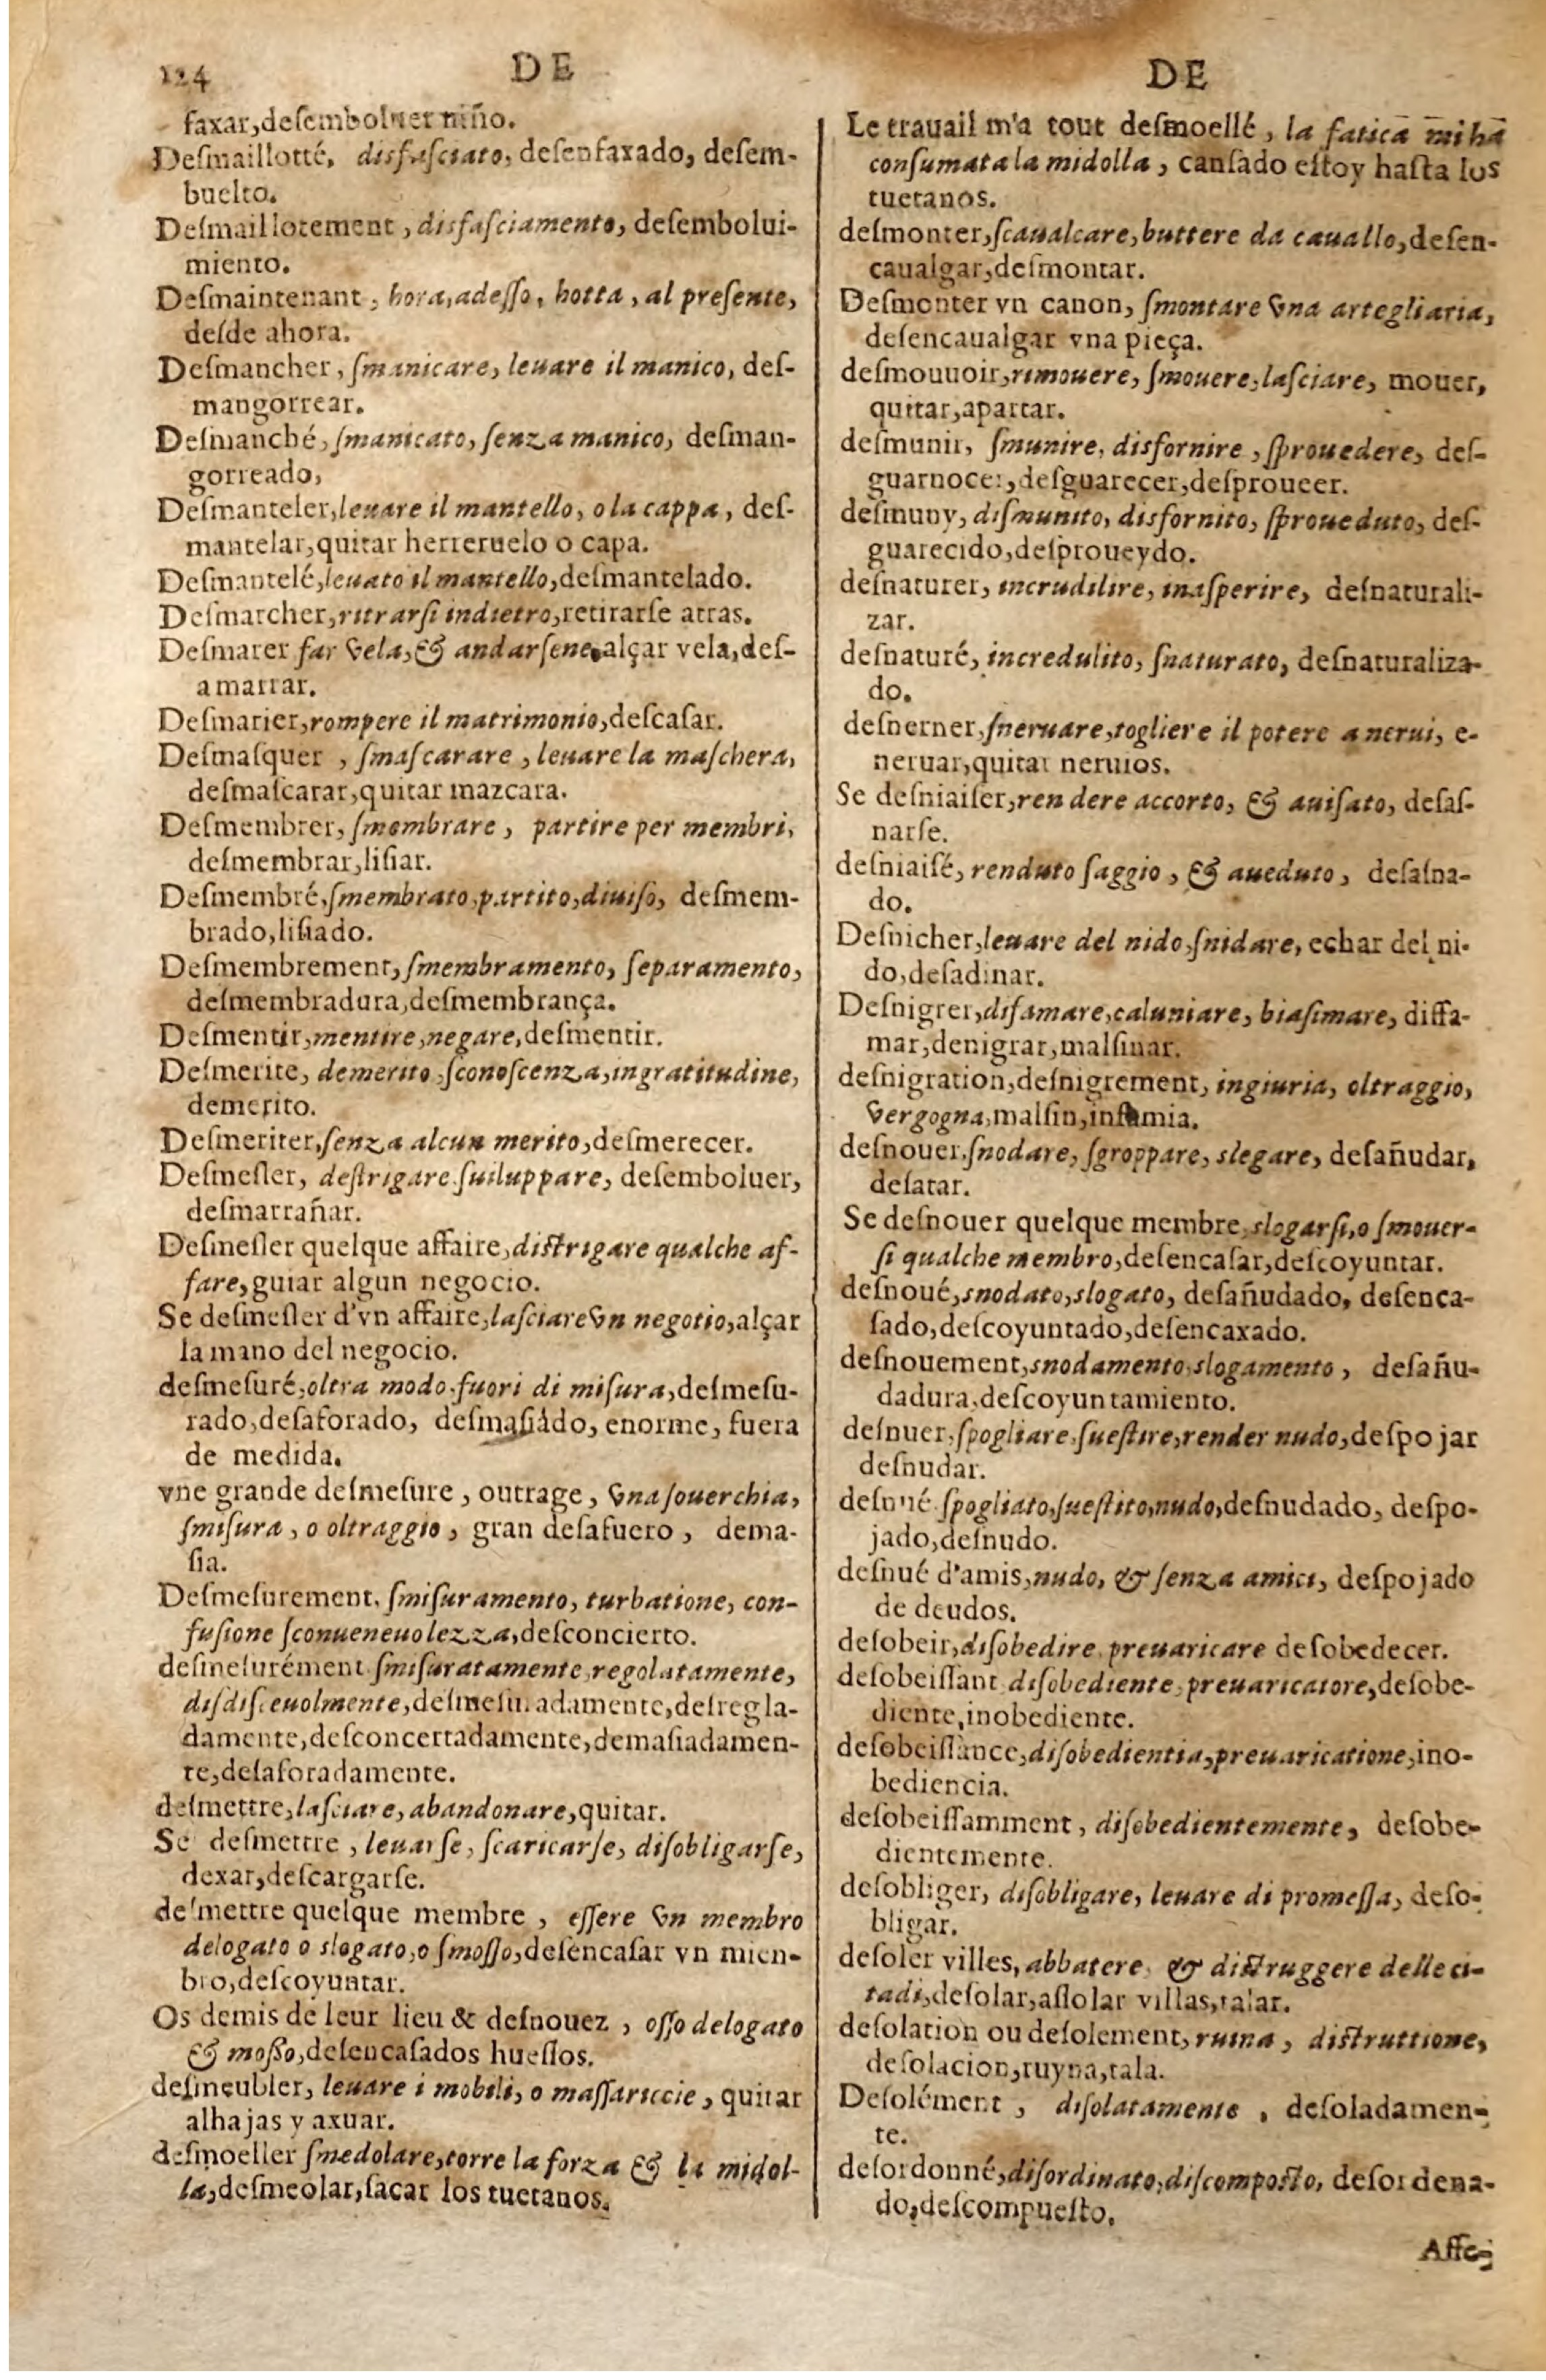 124 DE
faxar,deſemboluer niño.
Deſmaillotté, disfaſciato, deſenfaxado, deſem-
buelto.
Deſmaillotement, disfaſciamento, deſembolui-
miento.
Deſmaintenant, hora, adeſſo, hotta, al preſente,
deſde ahora.
Deſmancher, ſmanicare, leuare il manico, deſ-
mangorrear.
Deſmanché, ſmanicato, ſenza manico, deſman-
gorreado,
Deſmanteler, leuare il mantello, o la cappa, deſ-
mantelar, quitar herreruelo o capa.
Deſmantelé, leuato il mantello, deſmantelado.
Deſmarcher, ritrarſi indietro, retirarſe atras.
Deſmarer far vela, & andarſene, alçar vela, deſ-
amarrar.
Deſmarier, rompere il matrimonio, deſcaſar.
Deſmaſquer, ſmaſcarare, leuare la maſchera,
deſmaſcarar, quitar mazcara.
Deſmembrer, ſmembrare, partire per membri,
deſmembrar, liſiar.
Deſmembré, ſmembrato, partito, diuiſo, deſmem-
brado, liſiado.
Deſmembrement, ſmembramento, ſeparamento,
deſmembradura, deſmembrança.
Deſmentir, mentire, negare, deſmentir.
Deſmerite, demerito, ſconoſcenza, ingratitudine,
demerito.
Deſmeriter, ſenza alcun merito, deſmerecer.
Deſmeſler, deſtrigare, ſuiluppare, deſemboluer,
deſmarrañar.
Deſmeſler quelque affaire, diſtrigare qualche af-
fare, guiar algun negocio.
Se deſmeſler d'vn affaire, laſciare vn negotio, alçar
la mano del negocio.
deſmeſuré, oltra modo, fuori di miſura, deſmeſu-
rado, deſaforado, deſmaſiado, enorme, fuera
de medida.
vne grande deſmeſure, outrage, vna ſouerchia,
ſmiſura, o oltraggio, gran deſafuero, dema-
ſia.
Deſmeſurement, ſmiſuramento, turbatione, con-
fuſione ſconueneuolezza, deſconcierto.
deſmeſurément ſmiſuratamente, regolatamente,
deſmeſu.adamente, deſregla-
damente, deſconcertadamente, demaſiadamen-
te, deſaforadamente.
deſmettre, laſciare, abandonare, quitar.
Se deſmettre, leuarſe, ſcaricarſe, diſobligarſe,
dexar, deſcargarſe.
deſmettre quelque membre, eſſere vn membro
delogato o slogato, o ſmoſſo, deſencaſar vn mien-
bro, deſcoyuntar.
Os demis de leur lieu & deſnouez, oſſo delogato
& moſſo, deſencaſados hueſſos.
deſmeubler, leuare i mobili, o maſſariccie, quitar
alhajas y axuar.
deſmoeller ſmedolare, torre la forza & la midol-
la, deſmeolar, ſacar los tuetanos.
DE
Le trauail m'a tout deſmoellé, la fatica mi hà
conſumata la midolla, canſado eſtoy haſta los
tuetanos.
deſmonter, ſcaualcare, buttere da cauallo, deſen-
caualgar, deſmontar.
Deſmonter vn canon, ſmontare vna artegliaria,
deſencaualgar vna pieça.
deſmouuoir, rimouere, ſmouere, laſciare, mouer,
quitar, apartar.
deſmunir, ſmunire, disfornire, ſprouedere, deſ-
guarnocer, deſguarecer, deſproueer.
deſmuny, diſmunito, disfornito, ſproueduto, deſ-
guarecido, deſproueydo.
deſnaturer, incrudilire, inaſperire, deſnaturali-
zar.
deſnaturé, incredulito, ſnaturato, deſnaturaliza-
do.
deſnerner, ſneruare, togliere il potere a nerui, e-
neruar, quitar neruios.
Se deſniaiſer, rendere accorto, & auiſato, deſaſ-
narſe.
deſniaiſé, renduto ſaggio, & aueduto, deſaſna-
do.
Deſnicher, leuare del nido, ſnidare, echar del ni-
do, deſadinar.
Deſnigrer, difamare, caluniare, biaſimare, diffa-
mar, denigrar, malſinar.
deſnigration, deſnigrement, ingiuria, oltraggio,
vergogna, malſin, infamia.
deſnouer, ſnodare, ſgroppare, slegare, deſañudar,
deſatar.
Se deſnouer quelque membre, slogarſi, o ſmouer-
ſi qualche membro, deſencaſar, deſcoyuntar.
deſnoué, snodato, slogato, deſañudado, deſenca-
ſado, deſcoyuntado, deſencaxado.
deſnouement, snodamento, slogamento, deſañu-
dadura, deſcoyuntamiento.
deſnuer, ſpogliare, ſueſtire, render nudo, deſpojar
deſnudar.
deſnué ſpogliato, ſueſtito, nudo, deſnudado, deſpo-
jado, deſnudo.
deſnué d'amis, nudo, & ſenza amici, deſpojado
de deudos.
deſobeir, diſobedire, preuaricare deſobedecer.
deſobeiſſant diſobediente, preuaricatore, deſobe-
diente, inobediente.
deſobeiſſance, diſobedientia, preuaricatione, ino-
bediencia.
deſobeiſſamment, diſobedientemente, deſobe-
dientemente.
deſobliger, diſobligare, leuare di promeſſa, deſo-
bligar.
deſoler villes, abbatere, & diſtruggere delle ci-
tadi, deſolar, aſſolar villas, talar.
deſolation ou deſolement, ruina, diſtruttione,
deſolacion, ruyna, tala.
Deſolément, diſolatamente, deſoladamen-
te.
deſordonné, diſordinato, diſcompoſto, deſordena-
do, deſcompueſto.
Aſſe-